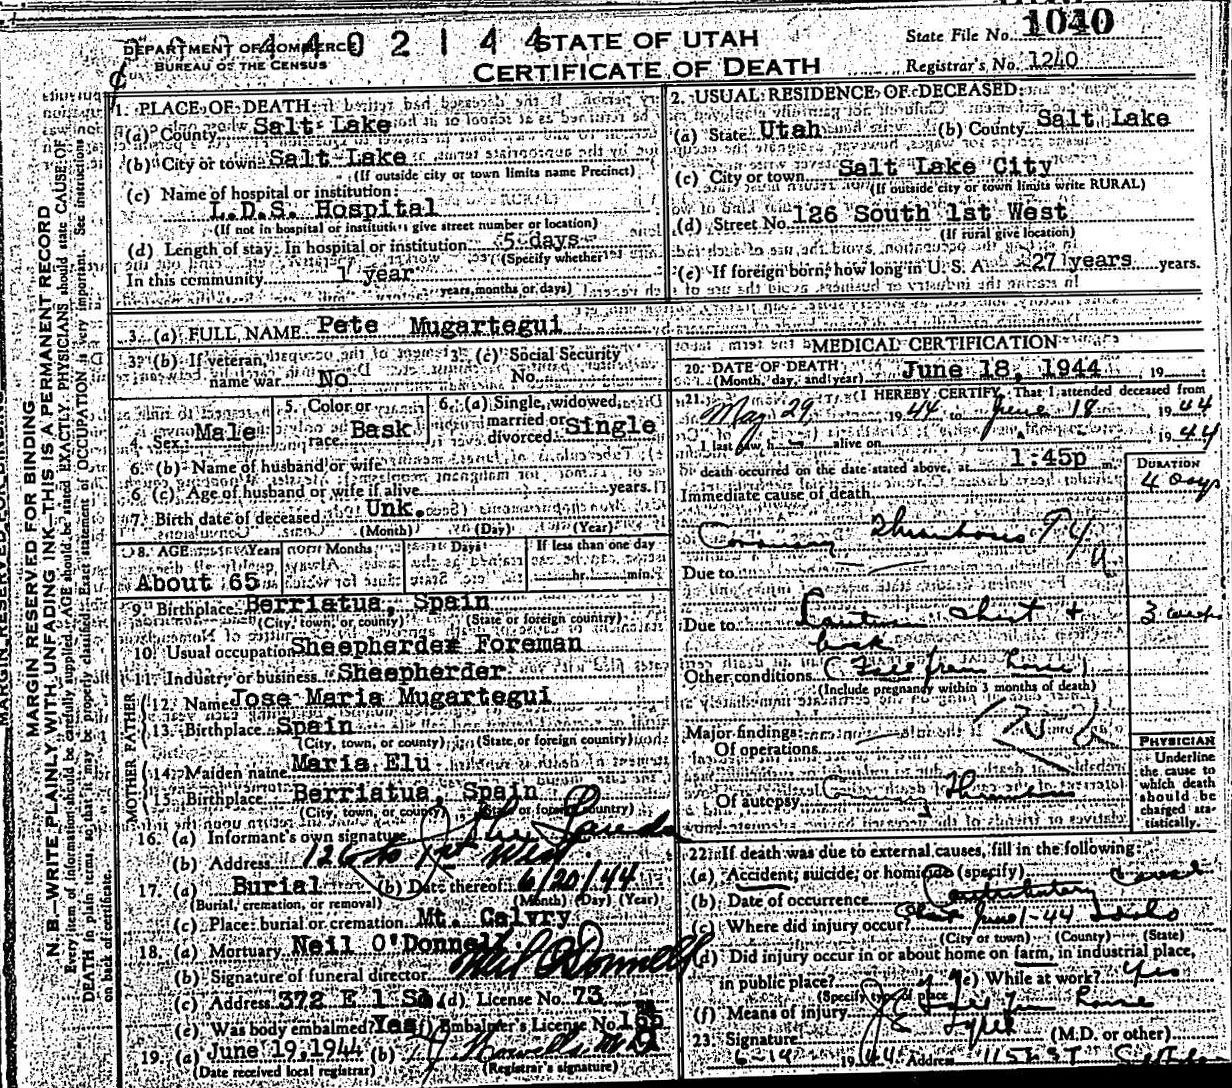 004402144
DEPARTMENT OF COMMERCE
BUREAU OF THE CENSUS
STATE OF UTAH
CERTIFICATE OF DEATH
State File No. 1040
Registrar's No. 1240
MARGIN RESERVED FOR BINDING
N. B.—WRITE PLAINLY WITH UNFADING INK—THIS IS A PERMANENT RECORD
Every item of information should be carefully supplied. AGE should be stated EXACTLY. PHYSICIANS should state CAUSE OF
DEATH in plain terms, so that it may be properly classified. Exact statement of OCCUPATION is very important. See instructions
on back of certificate.
1. PLACE OF DEATH:
(a) County Salt Lake
(b) City or town Salt Lake
(If outside city or town limits name Precinct)
(c) Name of hospital or institution:
L.D.S. Hospital
(If not in hospital or institution give street number or location)
(d) Length of stay: In hospital or institution 5 days
(Specify whether
In this community 1 year
years, months or days)
2. USUAL RESIDENCE OF DECEASED:
(a) State Utah (b) County Salt Lake
(c) City or town Salt Lake City
(If outside city or town limits write RURAL)
(d) Street No. 126 South 1st West
(If rural give location)
(e) If foreign born, how long in U. S. A. 27 years years.
3. (a) FULL NAME Pete Mugartegui
3. (b) If veteran, name war No
3. (c) Social Security No.
4. Sex Male
5. Color or race Bask
6. (a) Single, widowed, married or divorced Single
6. (b) Name of husband or wife
6. (c) Age of husband or wife if alive years.
7. Birth date of deceased Unk.
(Month) (Day) (Year)
8. AGE Years Months Days If less than one day
About 65 hr. min.
9. Birthplace Berriatua, Spain
(City, town, or county) (State or foreign country)
10. Usual occupation Sheepherder Foreman
11. Industry or business Sheepherder
FATHER
12. Name Jose Maria Mugartegui
13. Birthplace Spain
(City, town, or county) (State or foreign country)
MOTHER
14. Maiden name Maria Elu
15. Birthplace Berriatua, Spain
(City, town, or county) (State or foreign country)
16. (a) Informant's own signature
(b) Address 126 So 1st West
17. (a) Burial (b) Date thereof 6/20/44
(Burial, cremation, or removal) (Month) (Day) (Year)
(c) Place: burial or cremation Mt. Calvry
18. (a) Mortuary Neil O'Donnell
(b) Signature of funeral director Neil O'Donnell
(c) Address 372 E 1 So (d) License No. 73
(e) Was body embalmed? Yes (f) Embalmer's License No.
19. (a) June 19, 1944 (b)
(Date received local registrar) (Registrar's signature)
MEDICAL CERTIFICATION
20. DATE OF DEATH June 18, 1944 19
(Month, day, and year)
21. I HEREBY CERTIFY, That I attended deceased from
May 29, 1944 to June 18 1944
I last saw h alive on 1944
death occurred on the date stated above, at 1:45p m.
DURATION
Immediate cause of death 4 days
Coronary Thrombosis
Due to
Due to Contusion chest + 3 weeks
back
Other conditions (Fall from horse)
(Include pregnancy within 3 months of death)
Major findings:
Of operations
Of autopsy Coronary Thrombosis
PHYSICIAN
Underline
the cause to
which death
should be
charged sta-
tistically.
22. If death was due to external causes, fill in the following:
(a) Accident, suicide, or homicide (specify)
Contributory cause
(b) Date of occurrence
(c) Where did injury occur? June 1-44 Idaho
(City or town) (County) (State)
(d) Did injury occur in or about home on farm, in industrial place,
in public place? (e) While at work? Yes
(Specify type of place)
(f) Means of injury Fall from horse
23. Signature (M.D. or other)
6-19 1944 Address